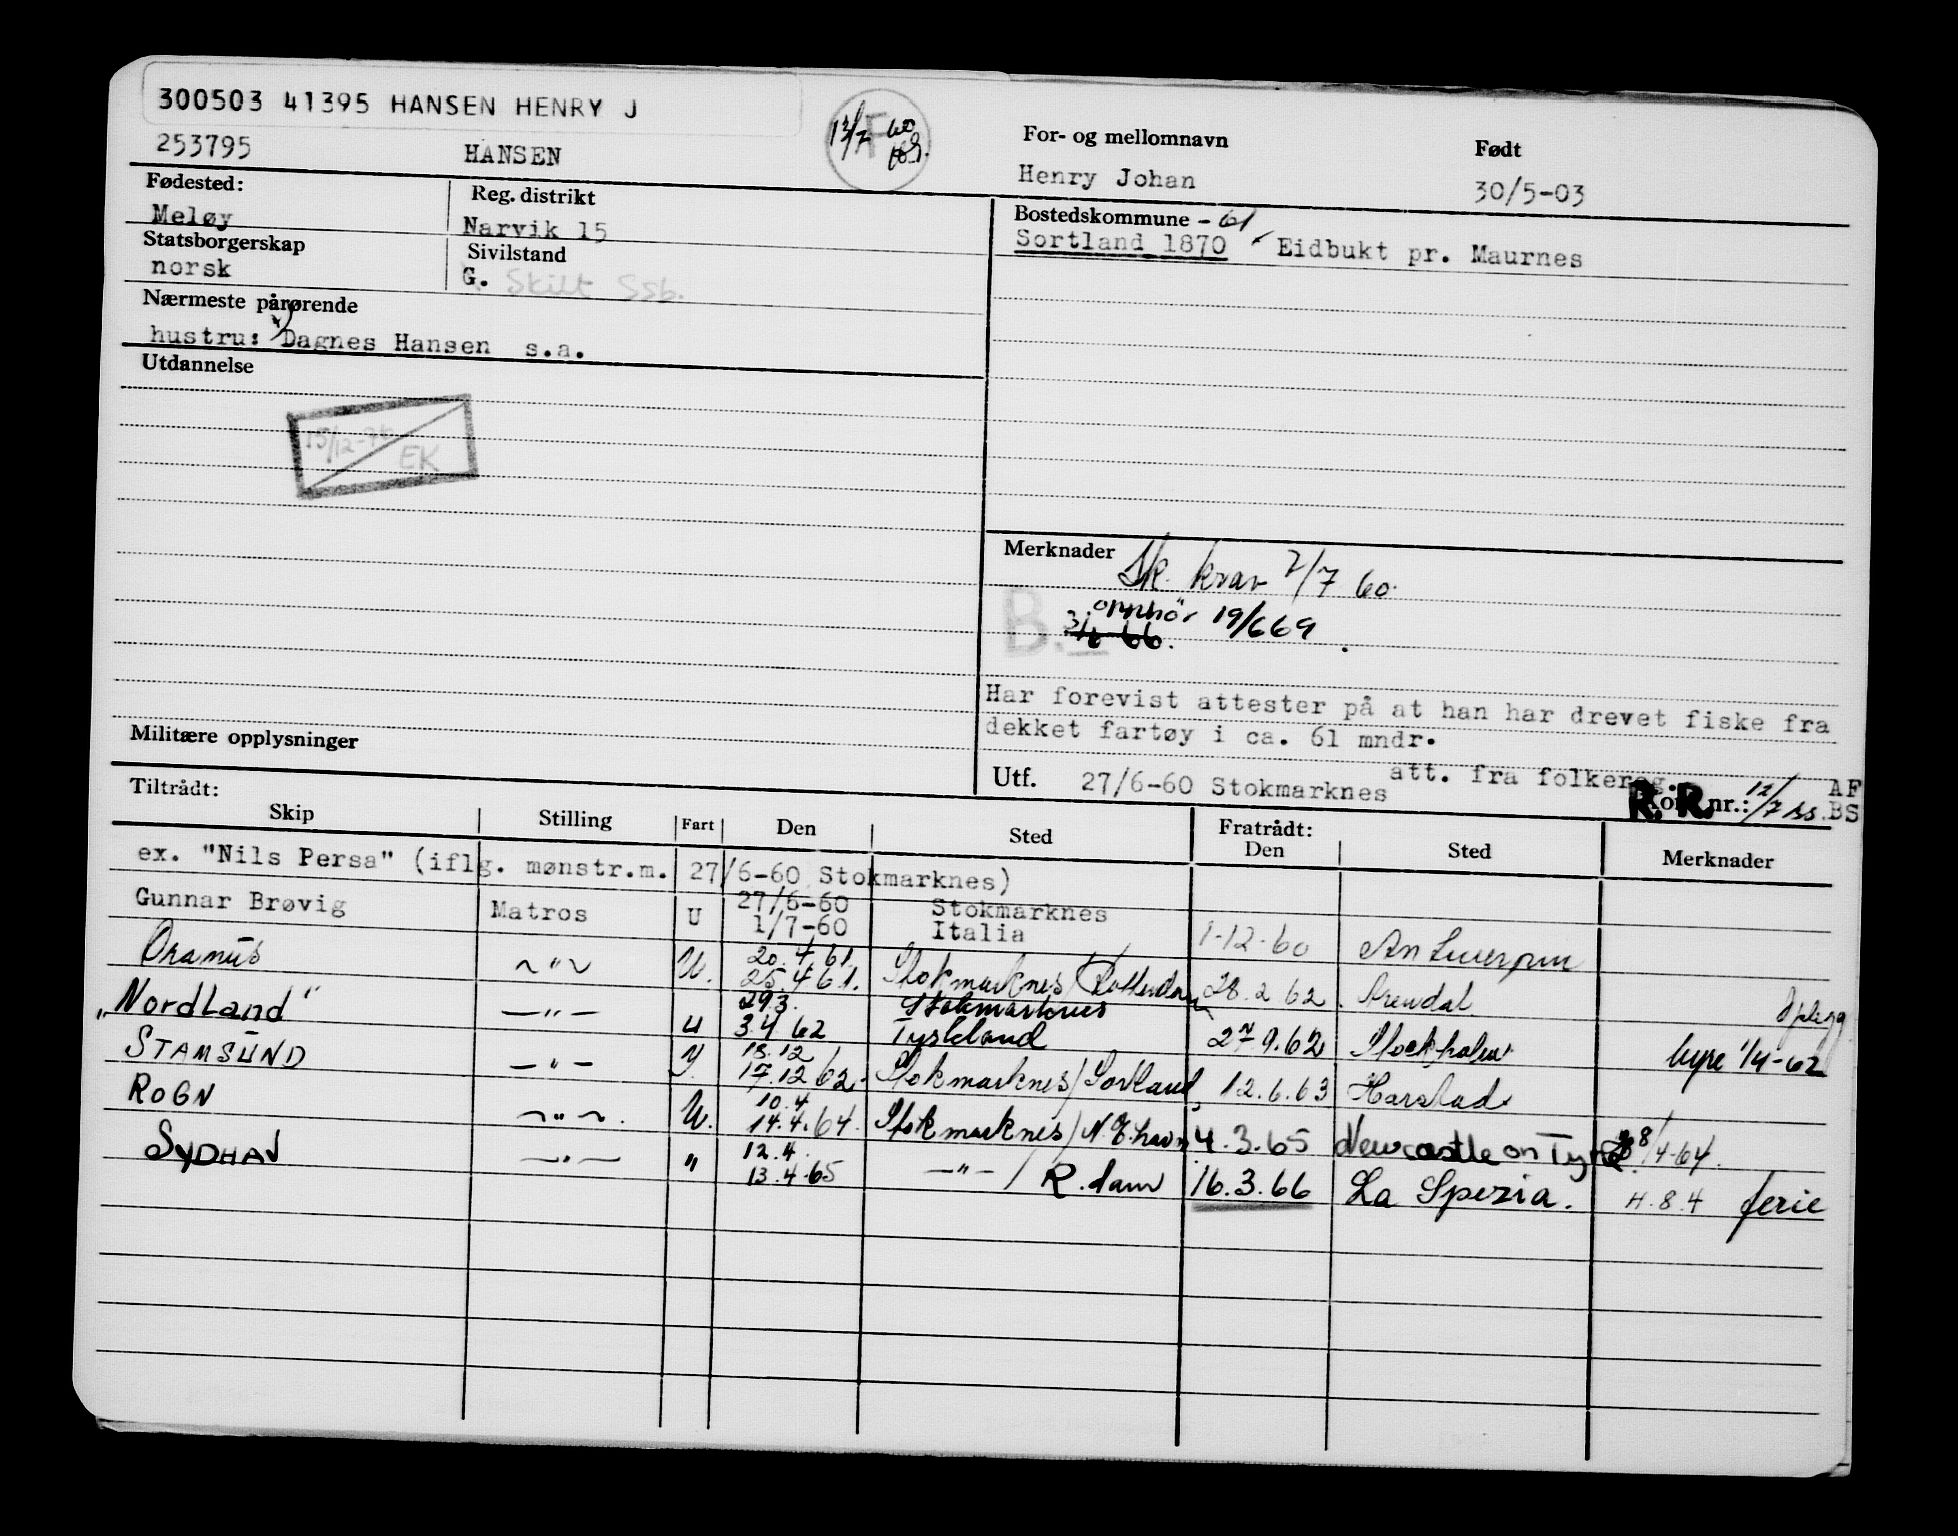 300503 41395 HANSEN HENRY J
253795 HANSEN 13/7 60
F
For- og mellomnavn Født
Henry Johan 30/5-03
Fødested: Reg. distrikt
Meløy Narvik 15
Statsborgerskap Sivilstand
norsk G. Skilt Ssb.
Bostedskommune - 61
Sortland 1870 Eidbukt pr. Maurnes
Nærmeste pårørende
hustru: Dagnes Hansen s.a.
Utdannelse
EK
Merknader Sk. krav 7/7 60.
opphør 19/6 69
B.
66.
Har forevist attester på at han har drevet fiske fra
dekket fartøy i ca. 61 mndr.
att. fra folkereg.
Militære opplysninger
Utf. 27/6-60 Stokmarknes R.R. nr.: 12/7 AF
BS
Tiltrådt: Fratrådt:
Skip Stilling Fart Den Sted Den Sted Merknader
ex. "Nils Persa" (iflg. mønstr.m. 27/6-60 Stokmarknes)
27/6-60 Stokmarknes
Gunnar Brøvig Matros U 1/7-60 Italia 1-12-60
20.4.61.
Oranus -"- U. 25.4.61. Stokmarknes/Rotterdam 28.2.62. Arendal Opplegg
29.3. Stokmarknes
"NordLand" -"- U 3.4 62 Tyskland 27.9.62 Stockholm hyre 1/4-62
13.12
STAMSUND -"- 17.12 62. Stokmarknes/Sortland 12.6.63 Harstad
10.4
ROGN -"- U. 14.4.64. Stokmarknes/ 4.3.65 Newcastle on Tyne 8/4-64.
12.4.
SYDHAV -"- " 13.4.65 -"-/R.dam 16.3.66 La Spezia. H.8.4 ferie